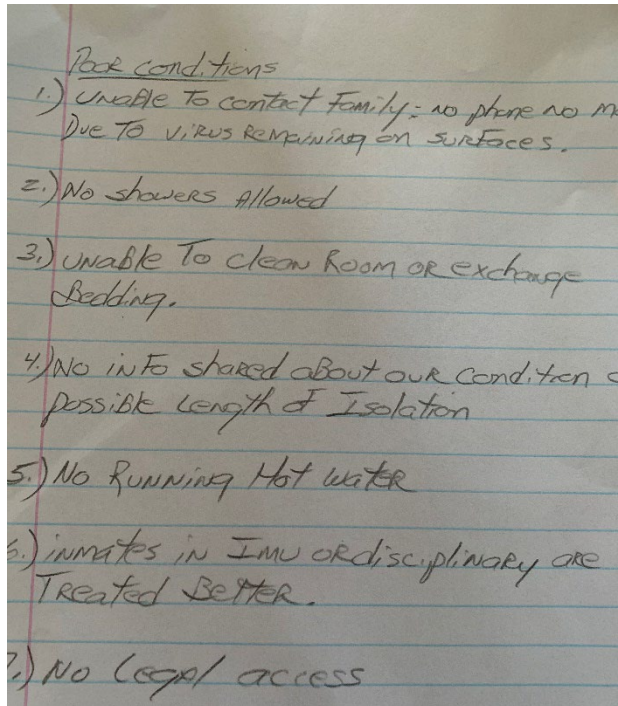 Poor conditions
1.) Unable To contact Family: no phone no
Due To virus Remaining on surfaces.
2.) No showers Allowed
3.) Unable To clean Room or exchange
Bedding.
4.) No info shared about our condition
possible Length of Isolation
5.) No Running Hot water
6.) inmates in IMU or disciplinary are
Treated Better.
7.) No Legal access